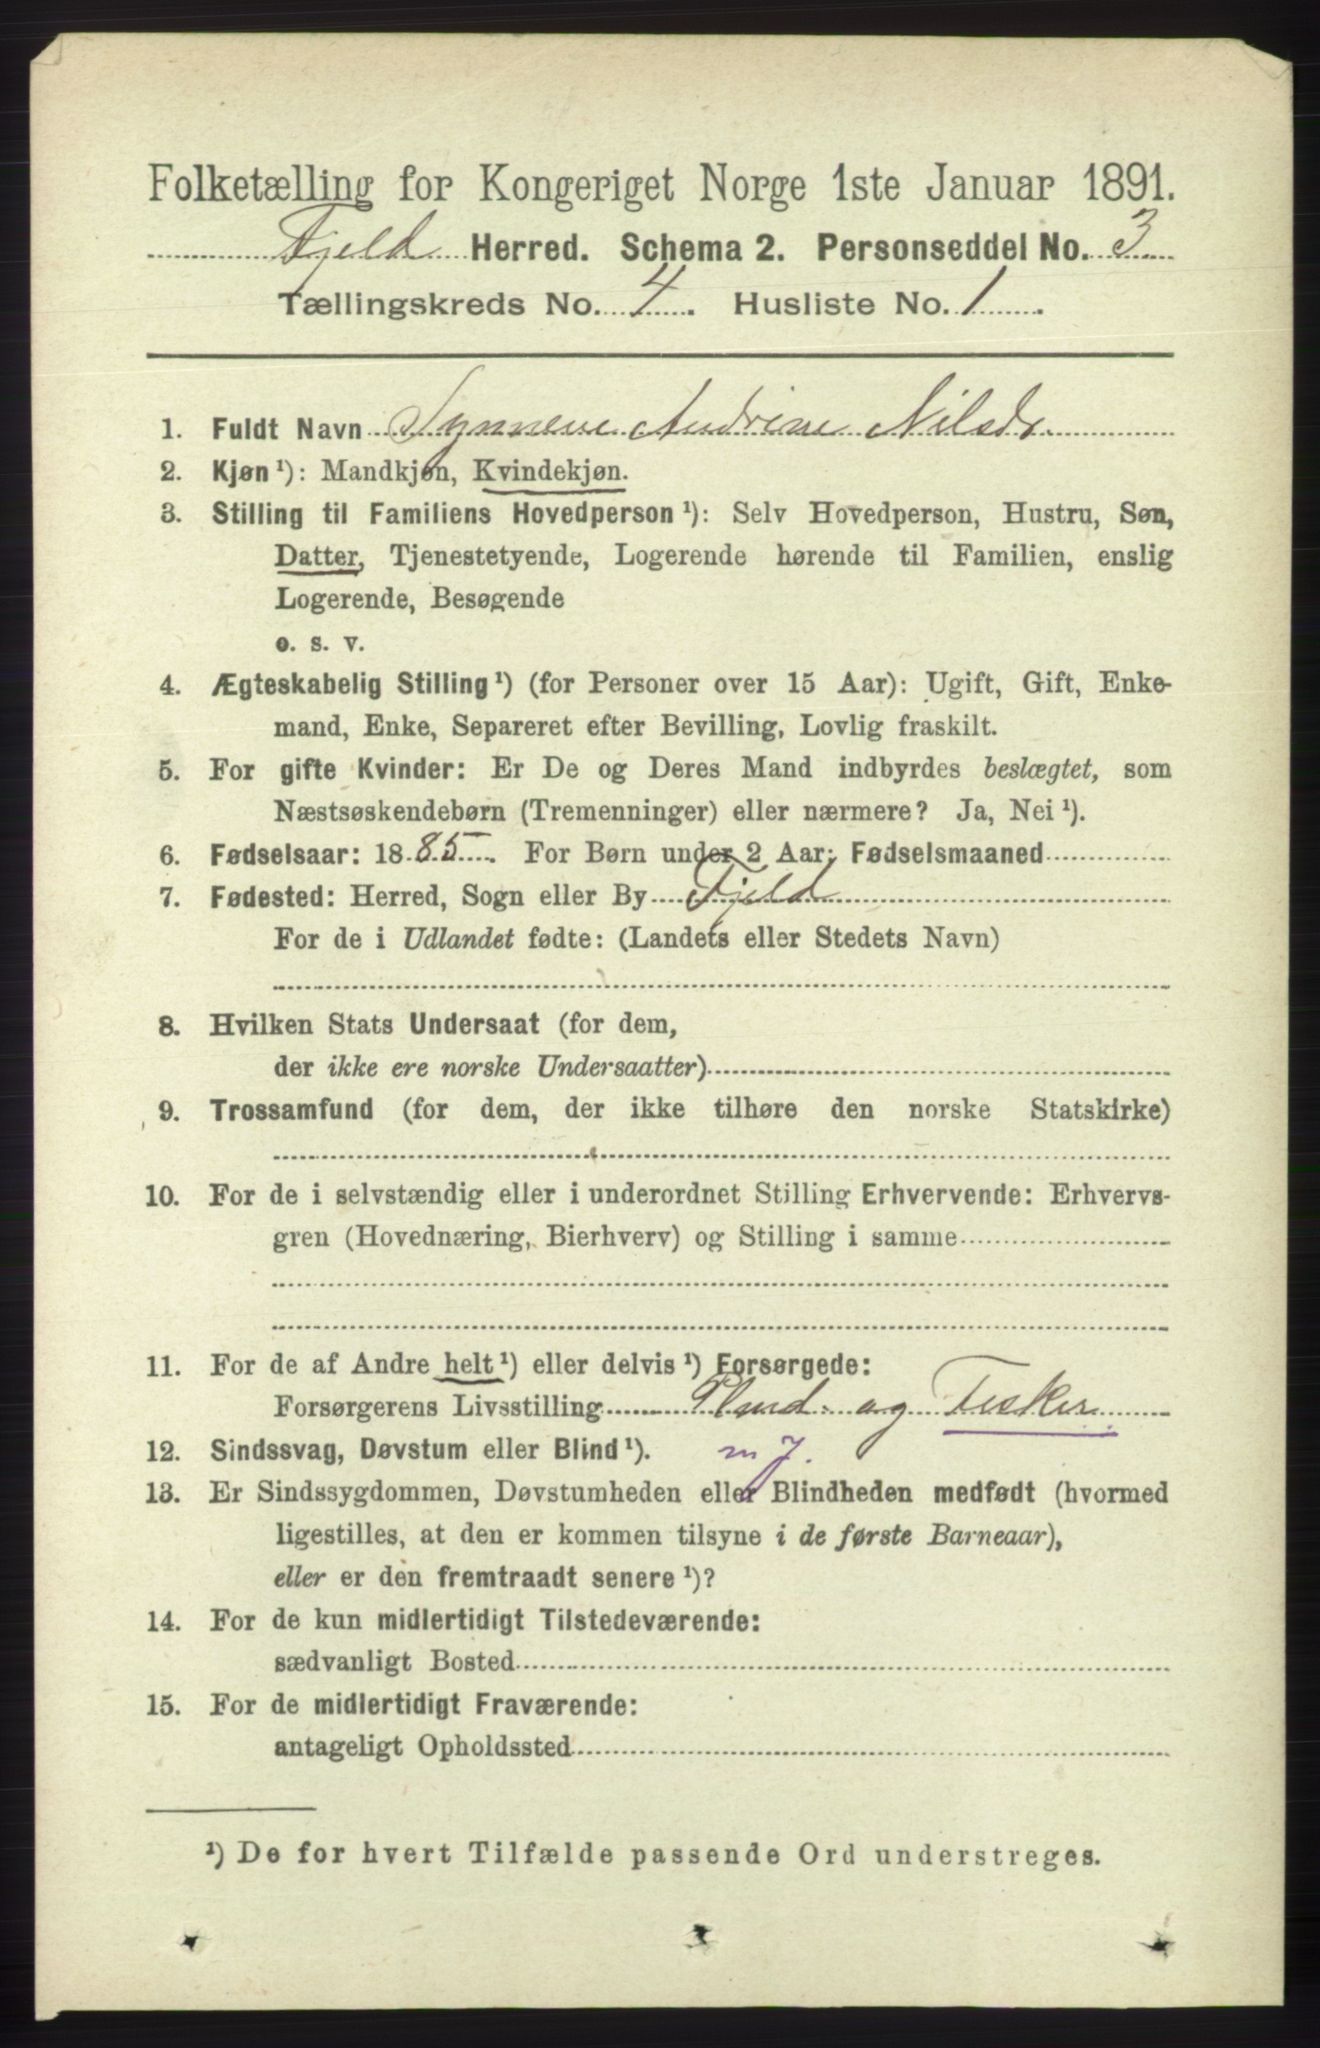 Folketælling for Kongeriget Norge 1ste Januar 1891.
Fjeld Herred. Schema 2. Personseddel No. 3
Tællingskreds No. 4. Husliste No. 1.
1. Fuldt Navn Synneve Andrine Nilsdr
2. Kjøn ¹): Mandkjøn, Kvindekjøn.
3. Stilling til Familiens Hovedperson ¹): Selv Hovedperson, Hustru, Søn,
Datter, Tjenestetyende, Logerende hørende til Familien, enslig
Logerende, Besøgende
o. s. v.
4. Ægteskabelig Stilling ¹) (for Personer over 15 Aar): Ugift, Gift, Enke-
mand, Enke, Separeret efter Bevilling, Lovlig fraskilt.
5. For gifte Kvinder: Er De og Deres Mand indbyrdes beslægtet, som
Næstsøskendebørn (Tremenninger) eller nærmere? Ja, Nei ¹).
6. Fødselsaar: 1885. For Børn under 2 Aar: Fødselsmaaned
7. Fødested: Herred, Sogn eller By Fjeld
For de i Udlandet fødte: (Landets eller Stedets Navn)
8. Hvilken Stats Undersaat (for dem,
der ikke ere norske Undersaatter)
9. Trossamfund (for dem, der ikke tilhøre den norske Statskirke)
10. For de i selvstændig eller i underordnet Stilling Erhvervende: Erhvervs-
gren (Hovednæring, Bierhverv) og Stilling i samme
11. For de af Andre helt ¹) eller delvis ¹) Forsørgede:
Forsørgerens Livsstilling og Fisker
12. Sindssvag, Døvstum eller Blind ¹).
13. Er Sindssygdommen, Døvstumheden eller Blindheden medfødt (hvormed
ligestilles, at den er kommen tilsyne i de første Barneaar),
eller er den fremtraadt senere ¹)?
14. For de kun midlertidigt Tilstedeværende:
sædvanligt Bosted
15. For de midlertidigt Fraværende:
antageligt Opholdssted
¹) De for hvert Tilfælde passende Ord understreges.